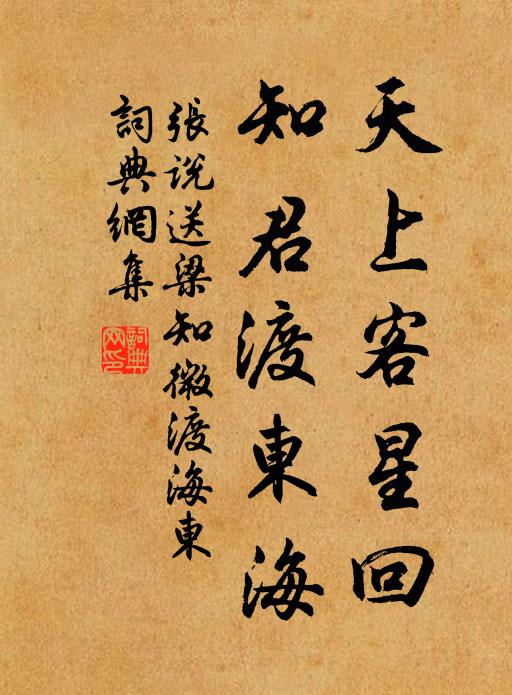 天上客星回
知君渡東海
張說送梁知微渡海東
詞典網集
詞典
网印